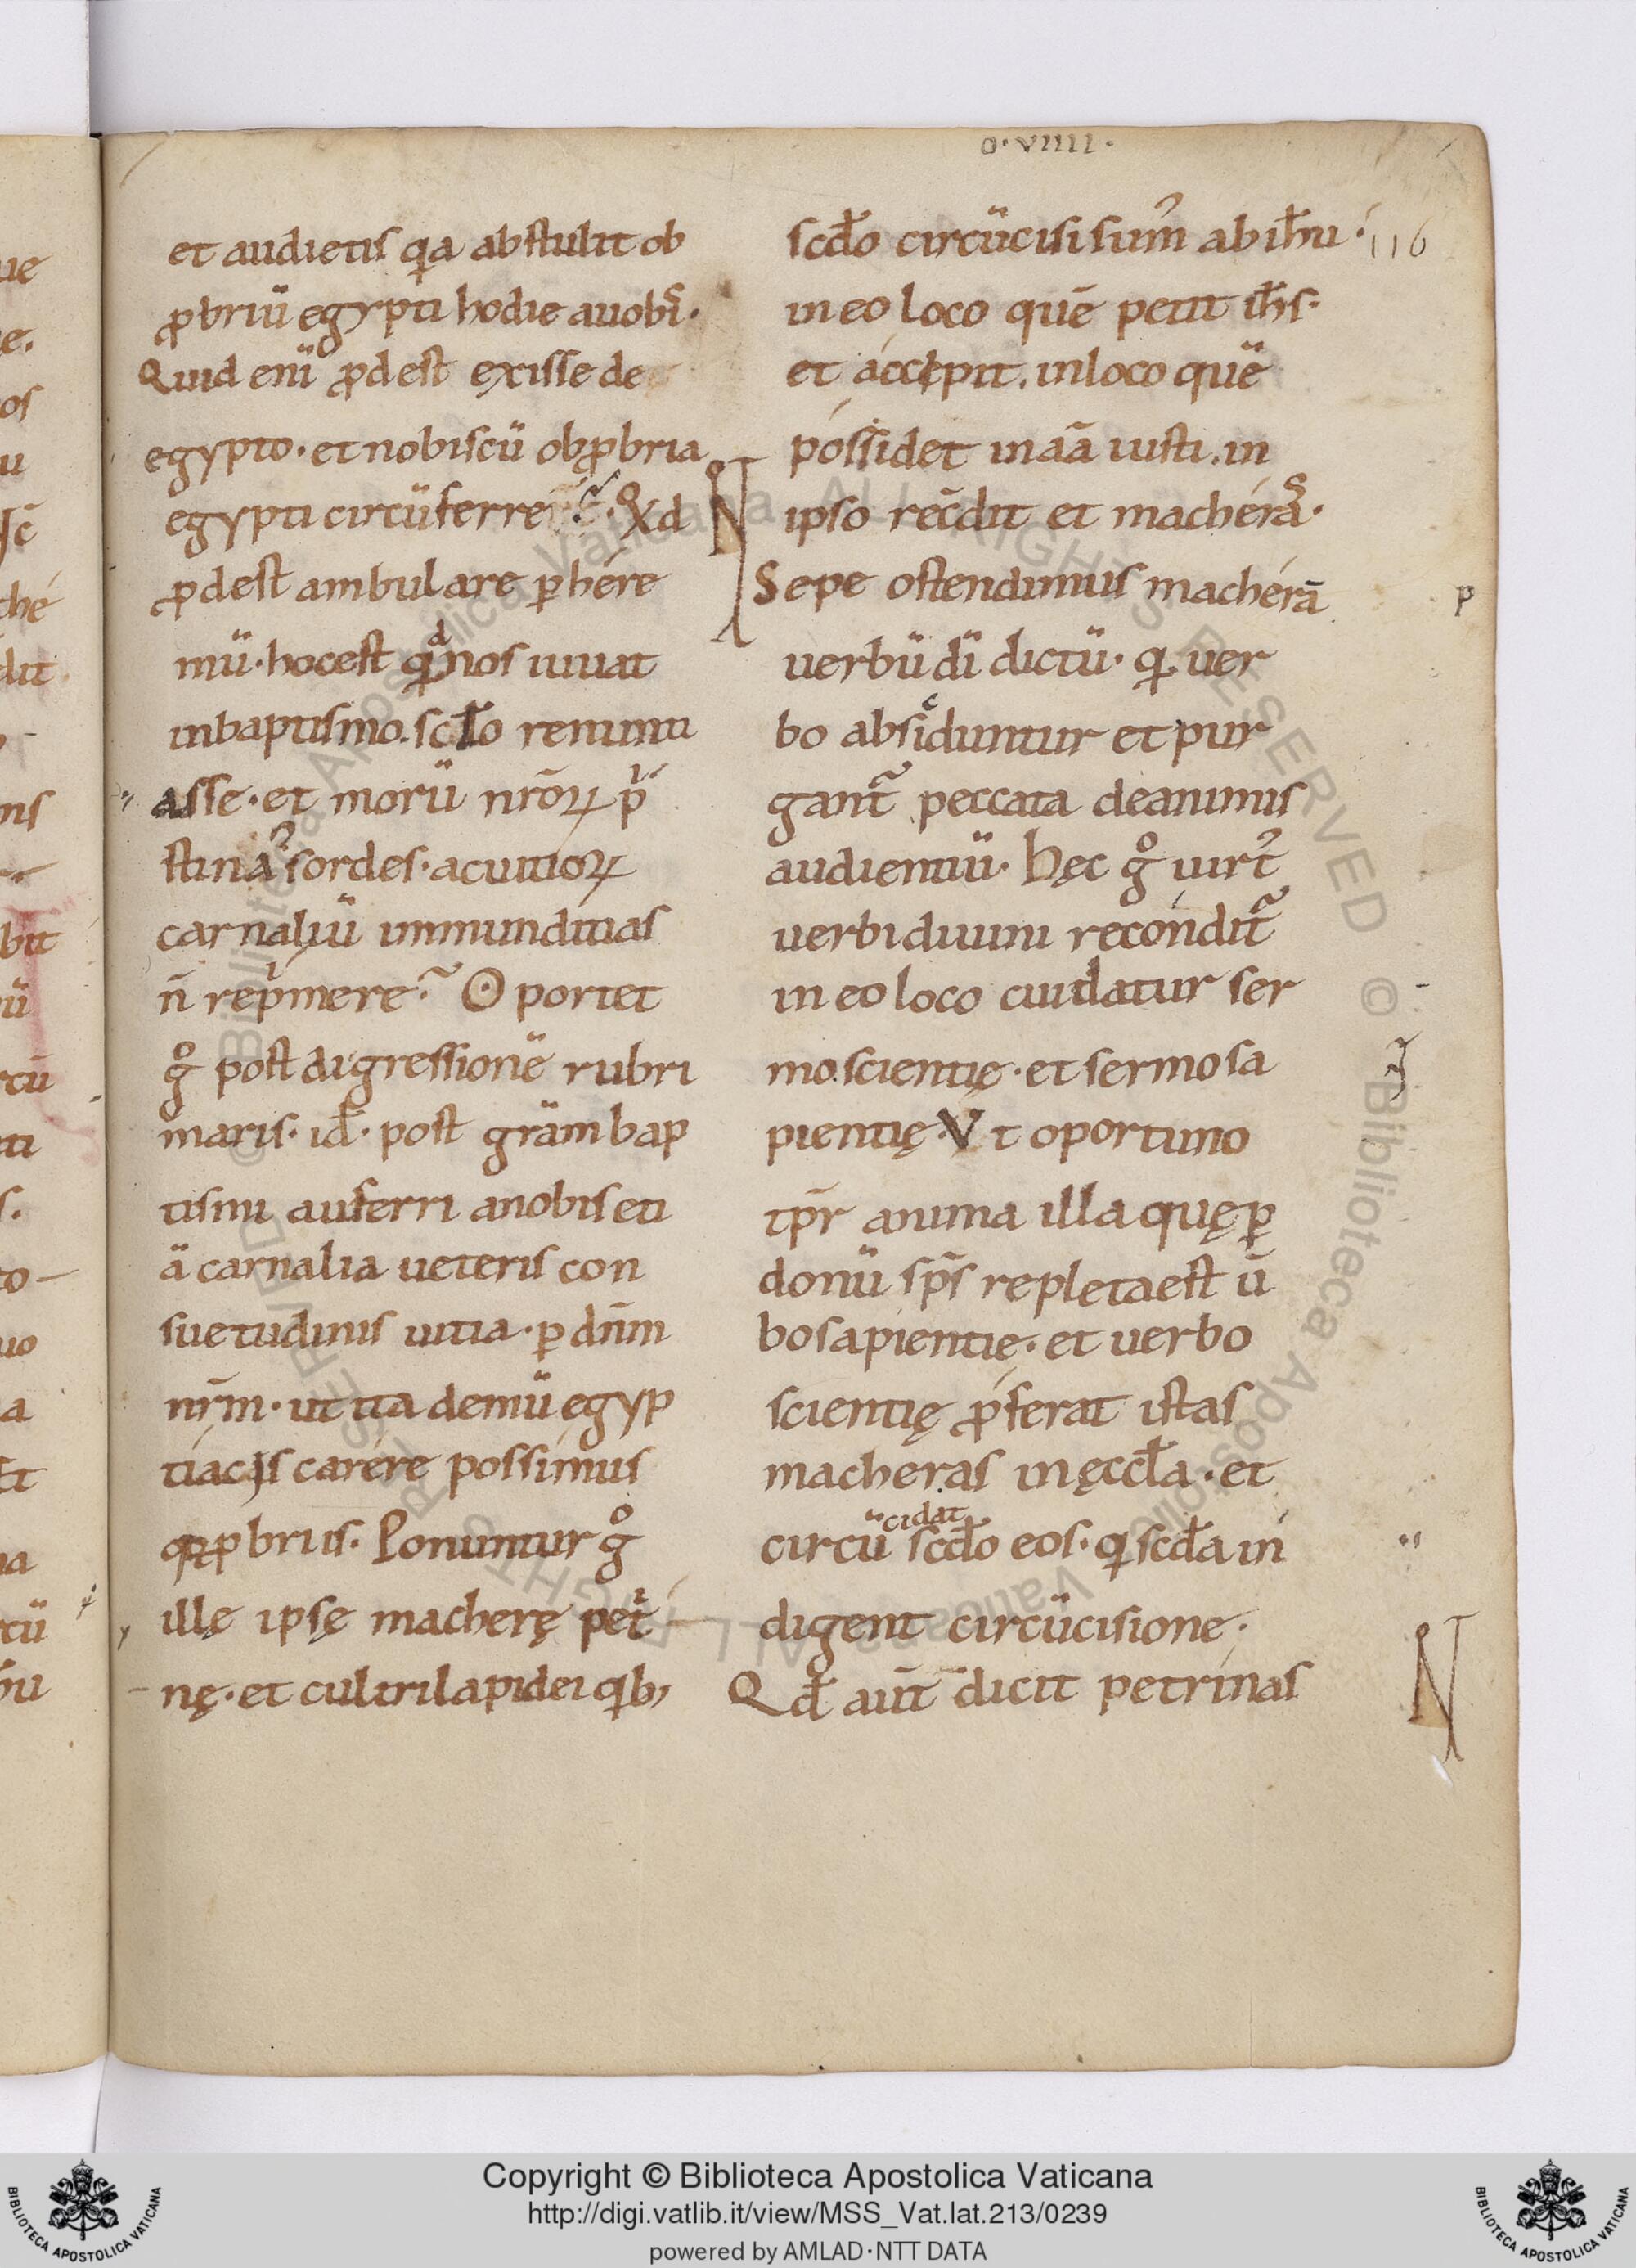 o · viiii ·
116
et audietis qa abstulit ob
ꝓbriū egypti hodie auobˢ·
Quid enī ꝓdest exisse de
egypto · et nobiscū obꝓbria
egypti circūferre · Qͦd
ꝓdest ambulare ꝑ here
mū · hoc est qͩ nos iuuat
inbaptismo. sc̄lo renunti
asse · et morū nr̄oꝝ pⁱ
stinaˢ sordes · ac uitioꝝ
carnaliū immunditias
n̄ repⁱmere? Oportet
gͦ post digressionē rubri
maris · id̄ · post grām bap
tismi auferri anobis eti
ā carnalia ueteris con
suetudinis uitia · ꝑ dn̄m
nr̄m · ut ita demū egyp
tiacis carere possimus
opꝓbriis. Ponuntur gͦ
illę ipsę macherę petⁱ
nę · et cultri lapidei qibꝫ
scd̄o circūcisi sumˀ ab ih̄u ·
in eo loco quē petit ih̄s·
et accepit. inloco quē
possidet in aīa iusti. in
ipso rec̄dit et macheraˢ·
Sepe ostendimus macherā
uerbū dī dictū · q uer
bo absciduntur et pur
gant᷑ peccata deanimis
audientiū · Hęc gͦ uirtˀ
uerbi diuini recondit᷑
in eo loco cui datur ser
mo scientię · et sermo sa
pientię · Vt oportuno
tp̄r anima illa quę ꝑ
donū sp̄s repleta est ū
bo sapientię · et uerbo
scientię ꝓferat istas
macheras in ęccl̄a · et
circūcidat scd̄o eos · q scd̄a in
digent circūcisione ·
Qd̄ aūt dicit petrinas
Copyright © Biblioteca Apostolica Vaticana
http://digi.vatlib.it/view/MSS_Vat.lat.213/0239
powered by AMLAD·NTT DATA